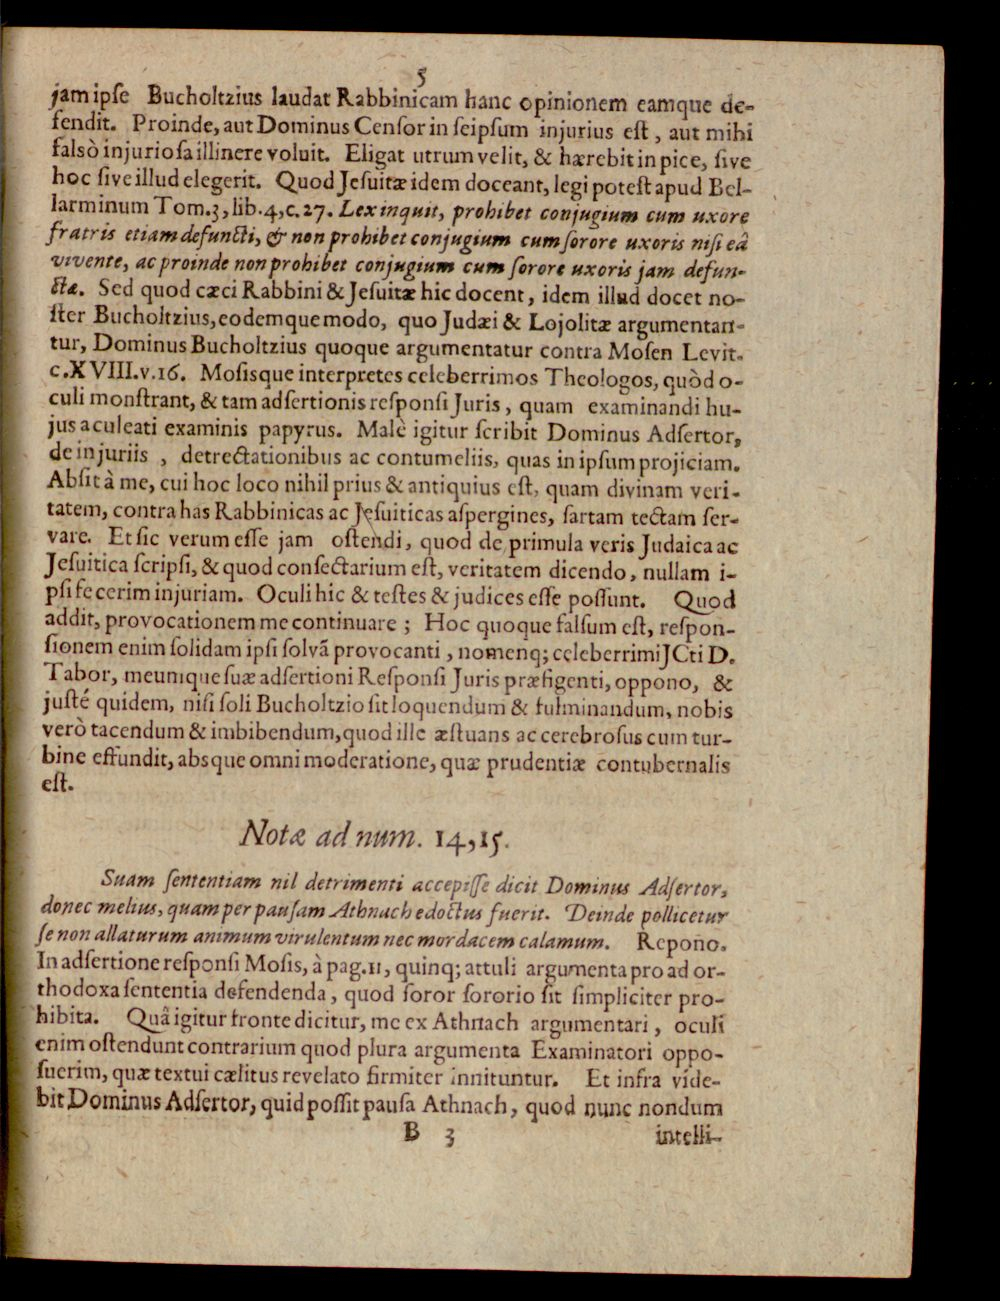 5
jam ipſe Bucholtzius laudat Rabbinicam hanc opinionem eamque de-
fendit. Proinde, aut Dominus Cenſor in ſeipſum injurius eſt, aut mihi
falsò injurioſa illinere voluit. Eligat utrum velit, & hærebit in pice, ſive
hoc ſive illud elegerit. Quod Jeſuitæ idem doceant, legi poteſt apud Bel-
larminum Tom.3, lib.4, c.27. Lex inquit, prohibet conjugium cum uxore
fratris etiam defuncti, & non prohibet conjugium cum ſorore uxoris niſi eâ
vivente, ac proinde non prohibet conjugium cum ſorore uxoris jam defun-
ctæ. Sed quod cæci Rabbini & Jeſuitæ hic docent, idem illud docet no-
ſter Bucholtzius, eodemque modo, quo Judæi & Lojolitæ argumentan-
tur, Dominus Bucholtzius quoque argumentatur contra Moſen Levit.
c.XVIII.v.16. Moſisque interpretes celeberrimos Theologos, quòd o-
culi monſtrant, & tam adſertionis reſponſi Juris, quam examinandi hu-
jus aculeati examinis papyrus. Malè igitur ſcribit Dominus Adſertor,
de injuriis, detrectationibus ac contumeliis, quas in ipſum projiciam.
Abſit à me, cui hoc loco nihil prius & antiquius eſt, quam divinam veri-
tatem, contra has Rabbinicas ac Jeſuiticas aſpergines, ſartam tectam ſer-
vare. Et ſic verum eſſe jam oſtendi, quod de primula veris Judaica ac
Jeſuitica ſcripſi, & quod conſectarium eſt, veritatem dicendo, nullam i-
pſi fecerim injuriam. Oculi hic & teſtes & judices eſſe poſſunt. Quod
addit, provocationem me continuare; Hoc quoque falſum eſt, reſpon-
ſionem enim ſolidam ipſi ſolvã provocanti, nomenq; celeberrimi JCti D.
Tabor, meumque ſuæ adſertioni Reſponſi Juris præfigenti, oppono, &
juſté quidem, niſi ſoli Bucholtzio ſit loquendum & fulminandum, nobis
verò tacendum & imbibendum, quod ille æſtuans ac cerebroſus cum tur-
bine effundit, absque omni moderatione, quæ prudentiæ contubernalis
eſt.
Notæ ad num. 14, 15.
Suam ſententiam nil detrimenti accepiſſe dicit Dominus Adſertor,
donec melius, quam per pauſam Athnach edoctus fuerit. Deinde pollicetur
ſe non allaturum animum virulentum nec mordacem calamum. Repono.
In adſertione reſponſi Moſis, à pag.11, quinq; attuli argumenta pro ad or-
thodoxa ſententia defendenda, quod ſoror ſororio ſit ſimpliciter pro-
hibita. Quâ igitur fronte dicitur, me ex Athnach argumentari, oculi
enim oſtendunt contrarium quod plura argumenta Examinatori oppo-
ſuerim, quæ textui cælitus revelato firmiter innituntur. Et infra vide-
bit Dominus Adſertor, quid poſſit pauſa Athnach, quod nunc nondum
B 3 intelli-